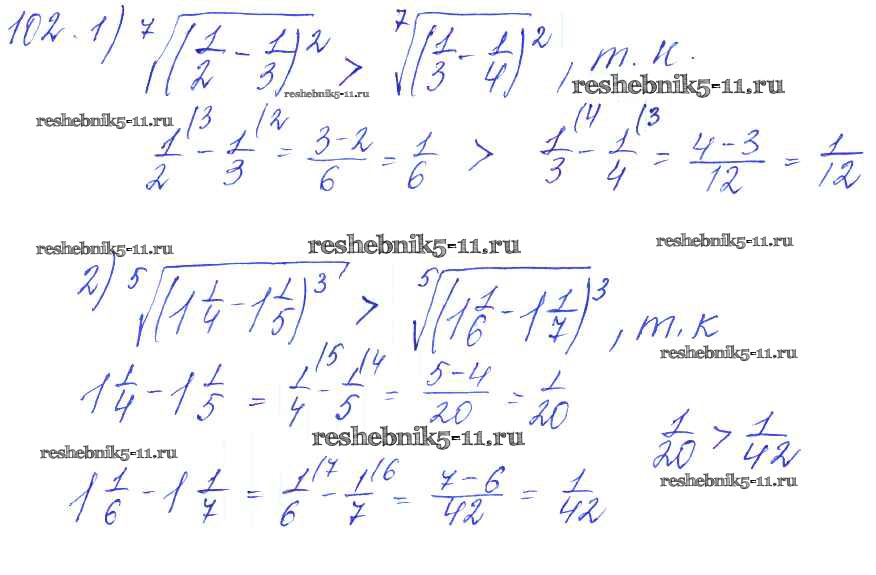 102. 1) ⁷√((1/2 - 1/3)²) > ⁷√((1/3 - 1/4)²), т.к.
reshebnik5-11.ru
reshebnik5-11.ru
reshebnik5-11.ru
1/2 (3 - 1/3 (2 = (3-2)/6 = 1/6 > 1/3 (4 - 1/4 (3 = (4-3)/12 = 1/12
reshebnik5-11.ru reshebnik5-11.ru reshebnik5-11.ru
2) ⁵√((1 1/4 - 1 1/5)³) > ⁵√((1 1/6 - 1 1/7)³), т.к
reshebnik5-11.ru
1 1/4 - 1 1/5 = 1/4 (5 - 1/5 (4 = (5-4)/20 = 1/20
1/20 > 1/42
reshebnik5-11.ru reshebnik5-11.ru
reshebnik5-11.ru
1 1/6 - 1 1/7 = 1/6 (7 - 1/7 (6 = (7-6)/42 = 1/42